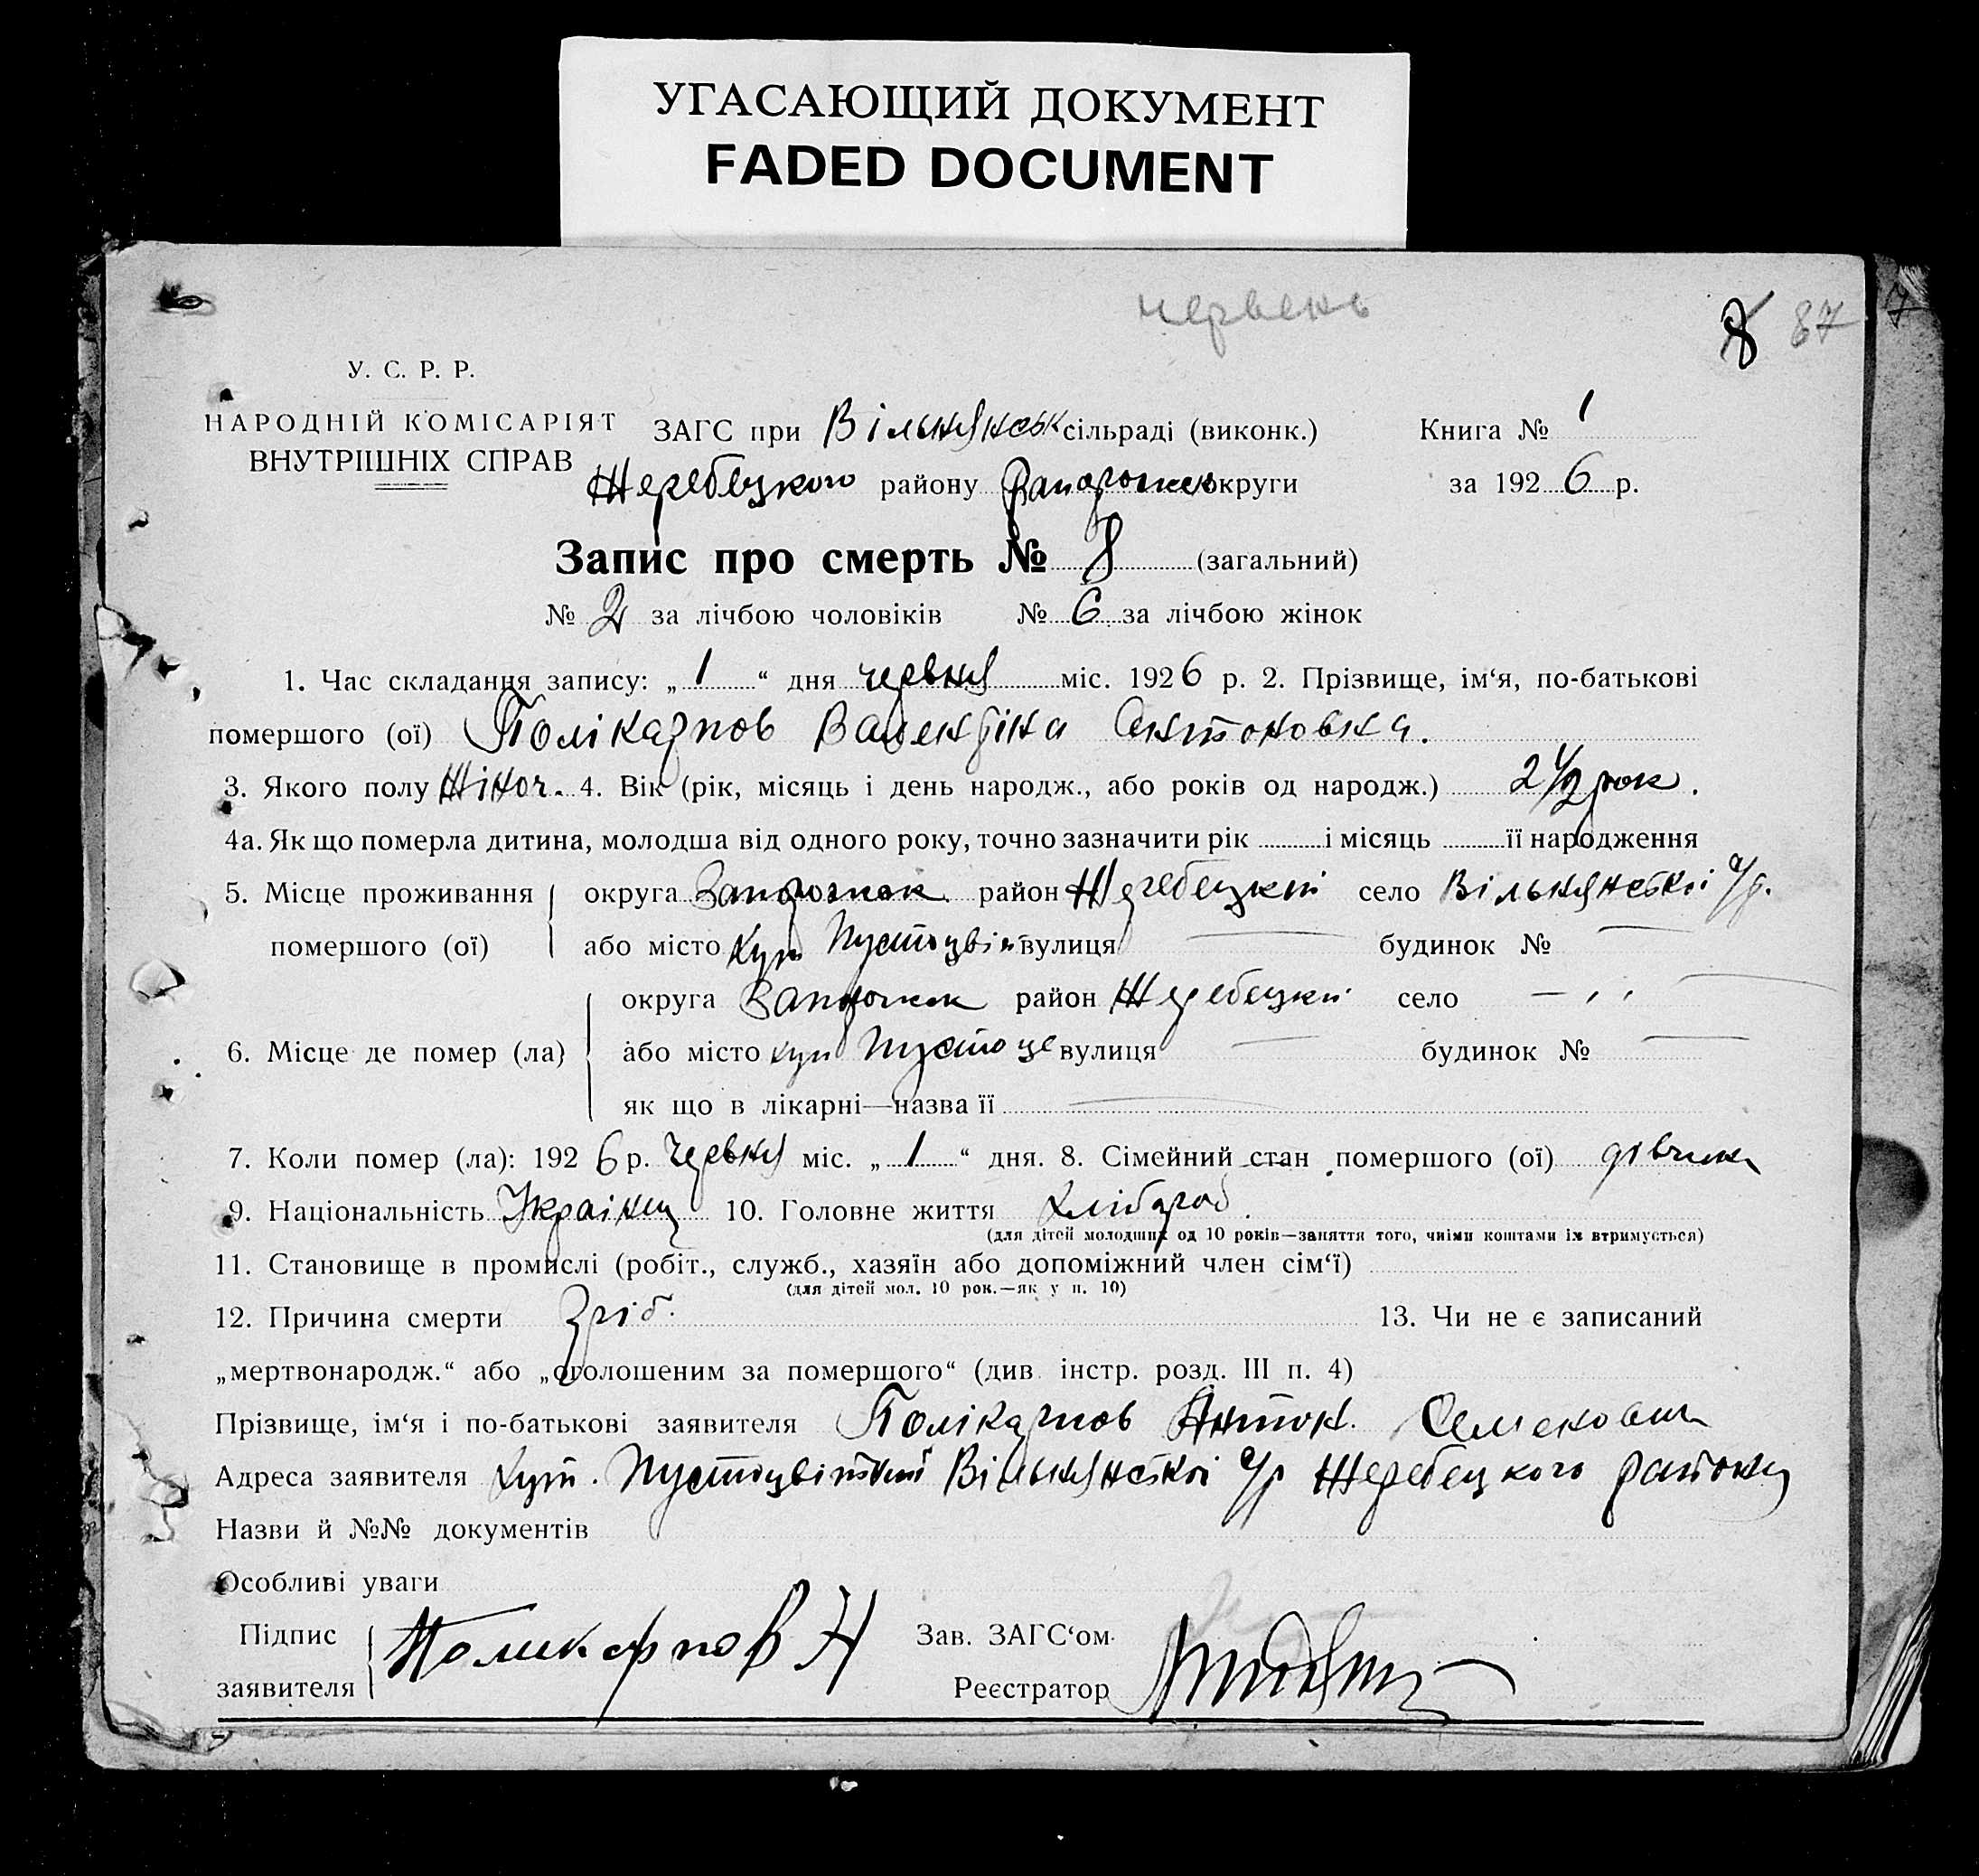 УГАСАЮЩИЙ ДОКУМЕНТ
FADED DOCUMENT
червень
8 87
У. С. Р. Р.
НАРОДНІЙ КОМІСАРІЯТ
ВНУТРІШНІХ СПРАВ
ЗАГС при Вільнянськ сільраді (виконк.) Книга № 1
Жеребецкого району Запорожск округи за 1926 р.
Запис про смерть № 8 (загальний)
№ 2 за лічбою чоловіків № 6 за лічбою жінок
1. Час складання запису: „ 1 “ дня червня міс. 1926 р. 2. Прізвище, ім‘я, по-батькові
помершого (ої) Полікарпов Валентіна Антоновна.
3. Якого полу Жіноч. 4. Вік (рік, місяць і день народж., або років од народж.) 2 1/2 рок.
4а. Як що померла дитина, молодша від одного року, точно зазначити рік ......... і місяць ......... її народження
5. Місце проживання округа Запорожск район Жеребецкій село Вільнянскоі с/р.
помершого (ої) або місто хут Пустоцвіт вулиця — будинок № —
округа Запорожск район Жеребецкий село — „ —
6. Місце де помер (ла) або місто хут Пустоцв вулиця — будинок № —
як що в лікарні—назва її —
7. Коли помер (ла): 1926 р. Червня міс. „ 1 “ дня. 8. Сімейний стан помершого (ої) дівчина
9. Національність Українц 10. Головне життя Хлібороб.
(для дітей молодших од 10 років—заняття того, чиїми коштами їх втримується)
11. Становище в промислі (робіт., служб., хазяїн або допоміжний член сім‘ї)
(для дітей мол. 10 рок.—як у п. 10)
12. Причина смерти 13. Чи не є записаний
„мертвонародж.“ або „оголошеним за помершого“ (див. інстр. розд. III п. 4)
Прізвище, ім‘я і по-батькові заявителя Полікарпов Антон Семенович
Адреса заявителя Хут. Пустоцвітский Вільнянскоі с/р Жеребецкого району
Назви й №№ документів
Особливі уваги
Підпис заявителя Поликарпов А
Зав. ЗАГС‘ом
Реєстратор